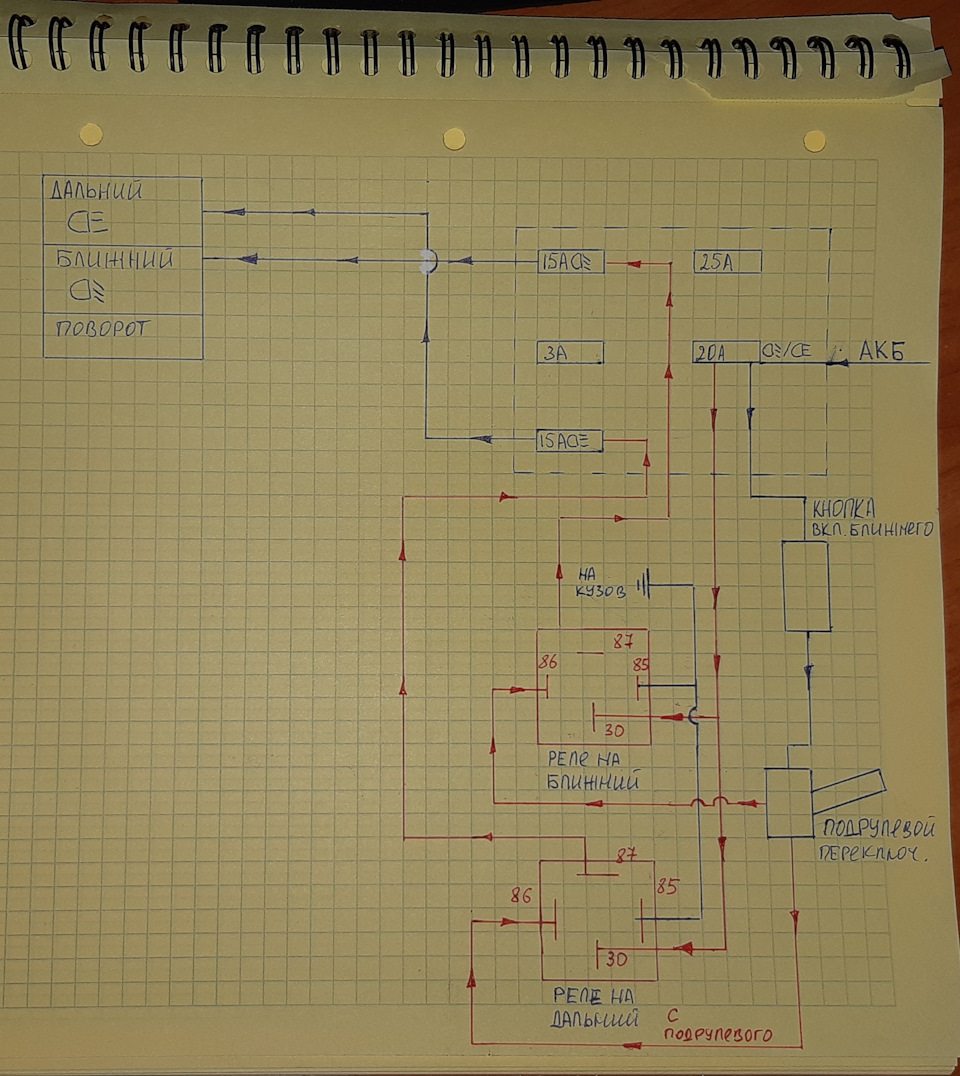 ДАЛЬНИЙ
БЛИЖНИЙ
ПОВОРОТ
15А
25А
3А
20А
АКБ
15А
КНОПКА
ВКЛ. БЛИЖНЕГО
НА
КУЗОВ
87
86
85
30
РЕЛЕ НА
БЛИЖНИЙ
ПОДРУЛЕВОЙ
ПЕРЕКЛЮЧ.
87
86
85
30
РЕЛЕ НА
ДАЛЬНИЙ
С
ПОДРУЛЕВОГО